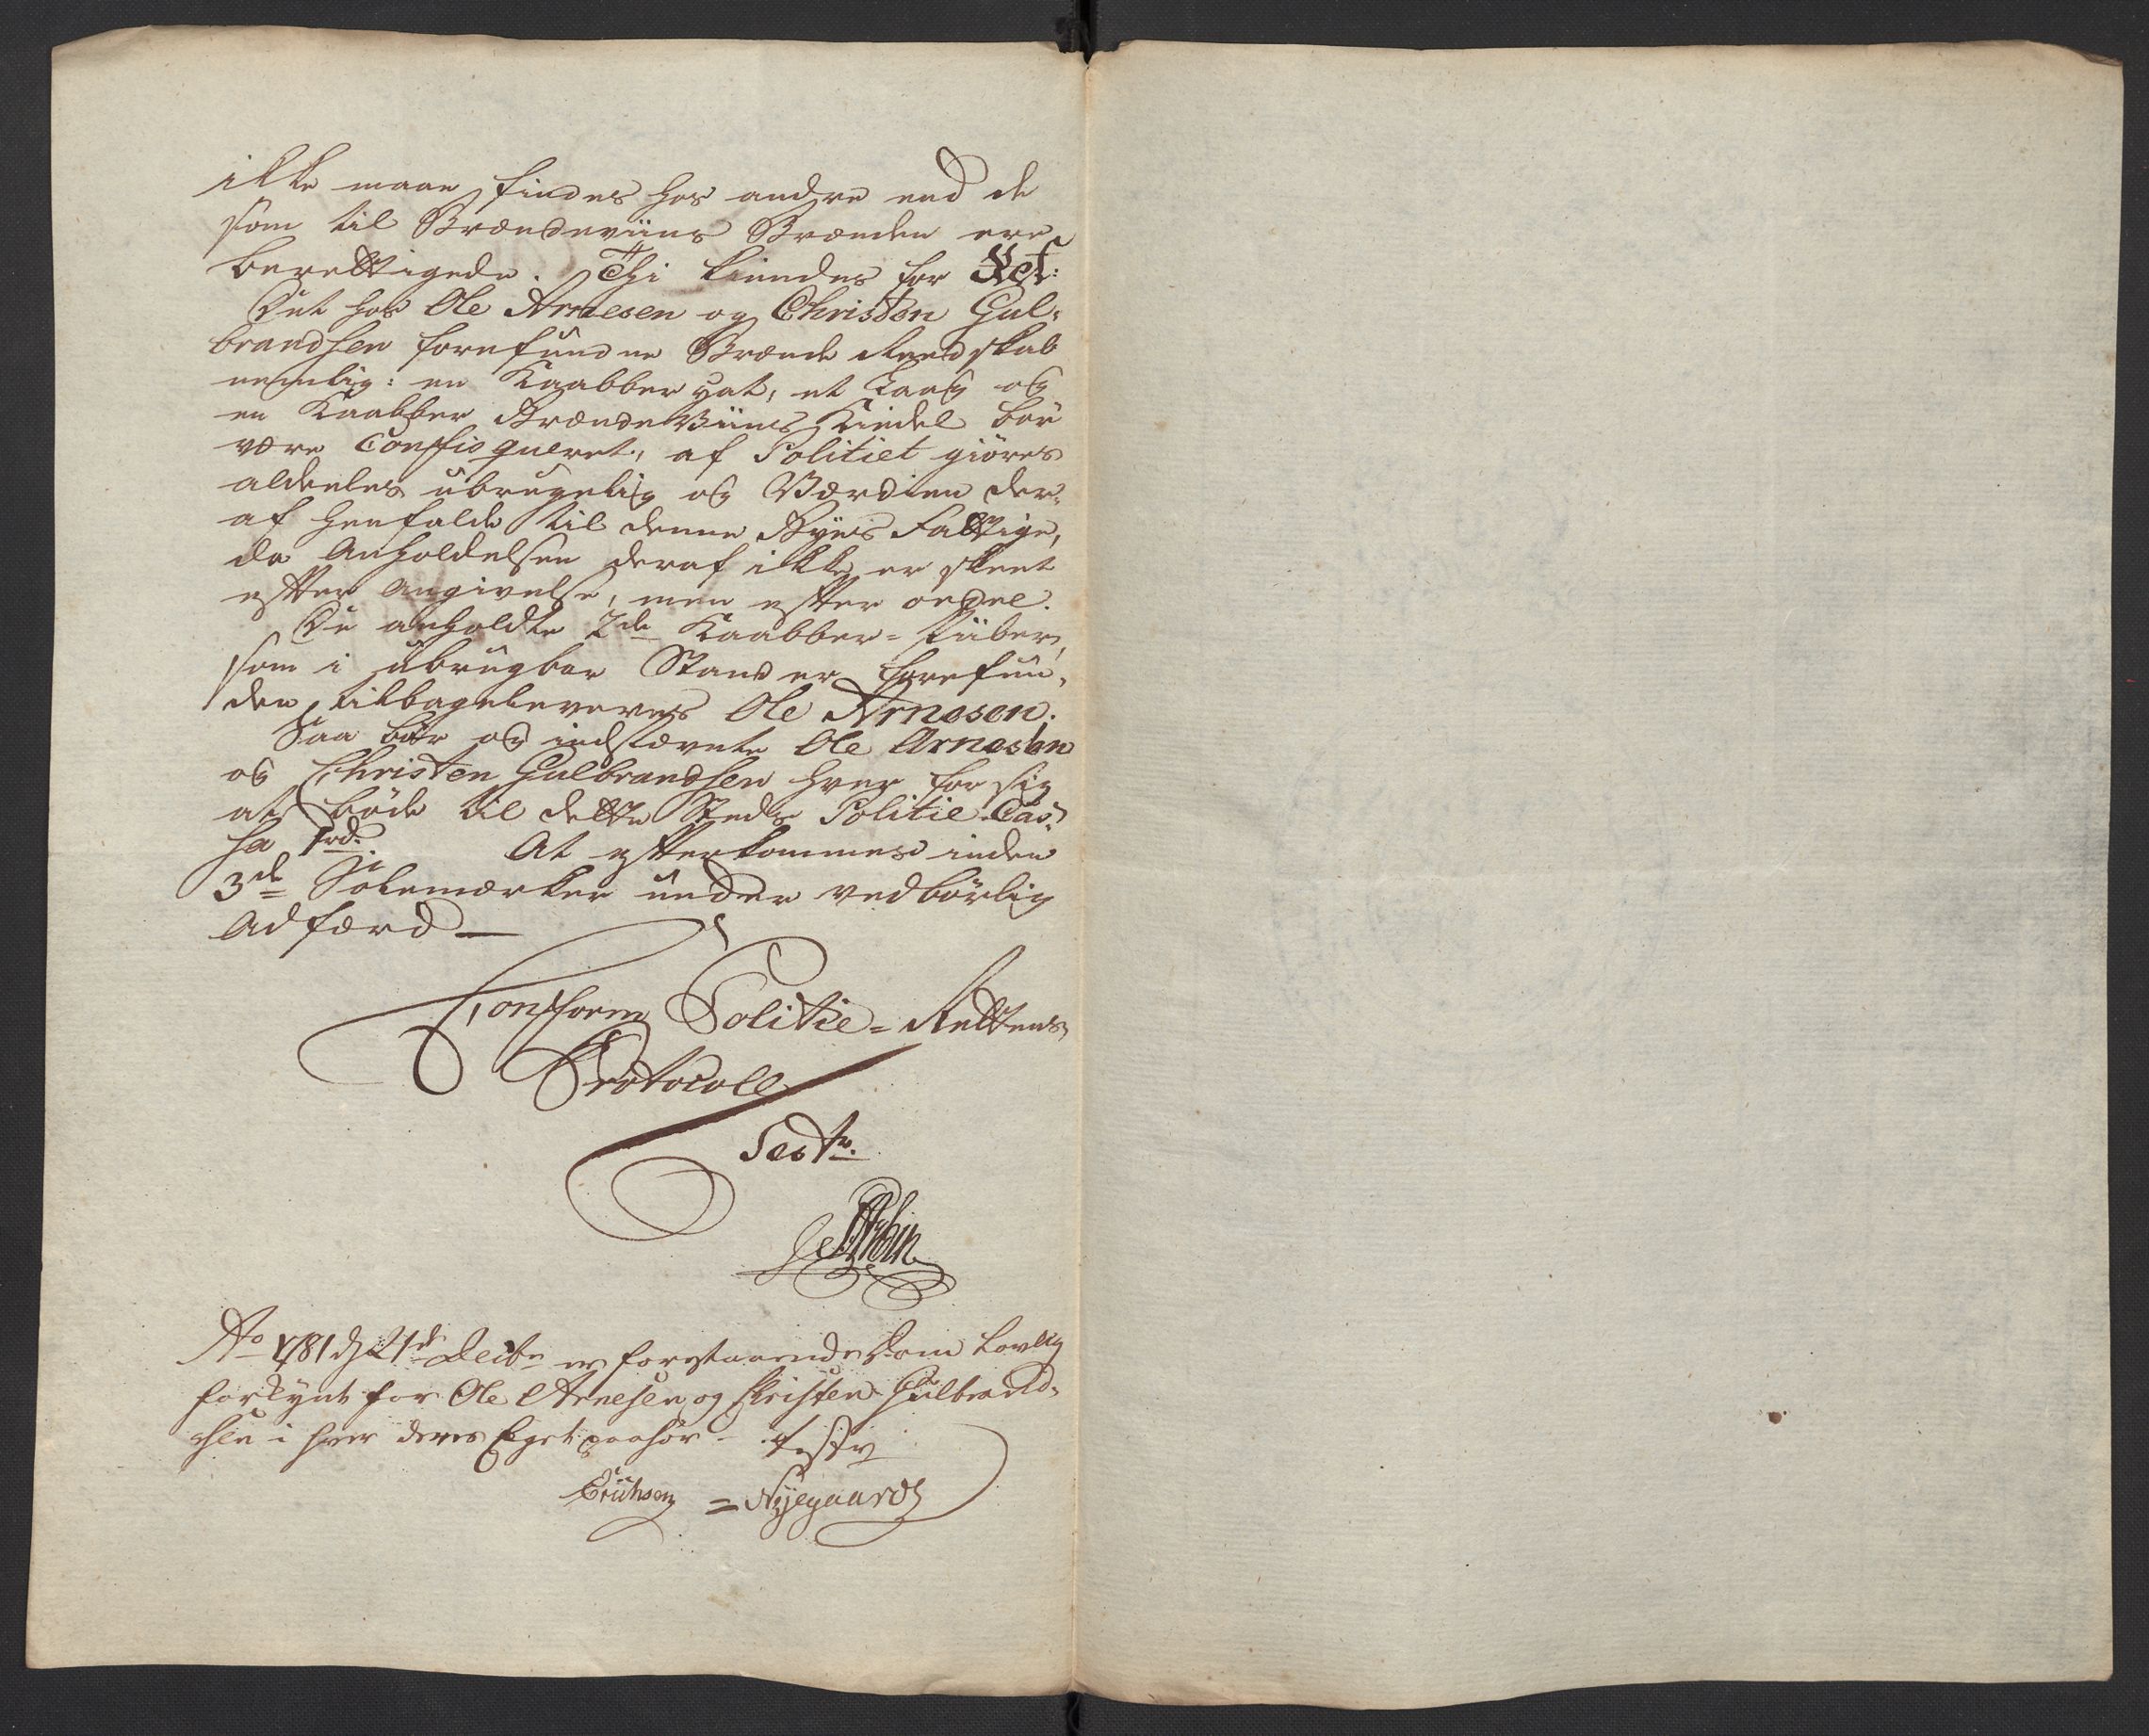 ikke maae findes hos andre end de
som til Brændeviins Brænden ere
berettigede. Thi kiendes for Ret:
Det hos Ole Arnesen og Christen Gul-
brandsen forefundne Brænde Reedskab
nemlig: en Kaabber hat, et Laag og
en Kaabber Brændeviins Kiedel bör
være Confisqueret, af Politiet giöres
aldeeles ubrugelig og Værdien der-
af henfalde til denne Byes Fattige,
da Anholdelsen deraf ikke er skeet
efter Angivelse, men efter ordre.
De anholdte 2de Kaabber-Piiber,
som i ubrugbar Stand er forefun-
den, tilbageleveres Ole Arnesen.
Saa bör og indstævnte Ole Arnesen
og Christen Gulbrandsen hver for sig
at böde til dette Steds Politie-Cas-
sa 1rd. At efterkommes inden
3de Solemærker under vedbörlig
Adfærd —
Conform Politie-Rettens
Protocoll
Test.
Ao 1781 d 21de Decbr er forestaaende Dom Lovlig
forkynt for Ole Arnesen og Christen Gulbrand-
sen i hver deres Eget paahör - Test
Erichsen = Nyegaard